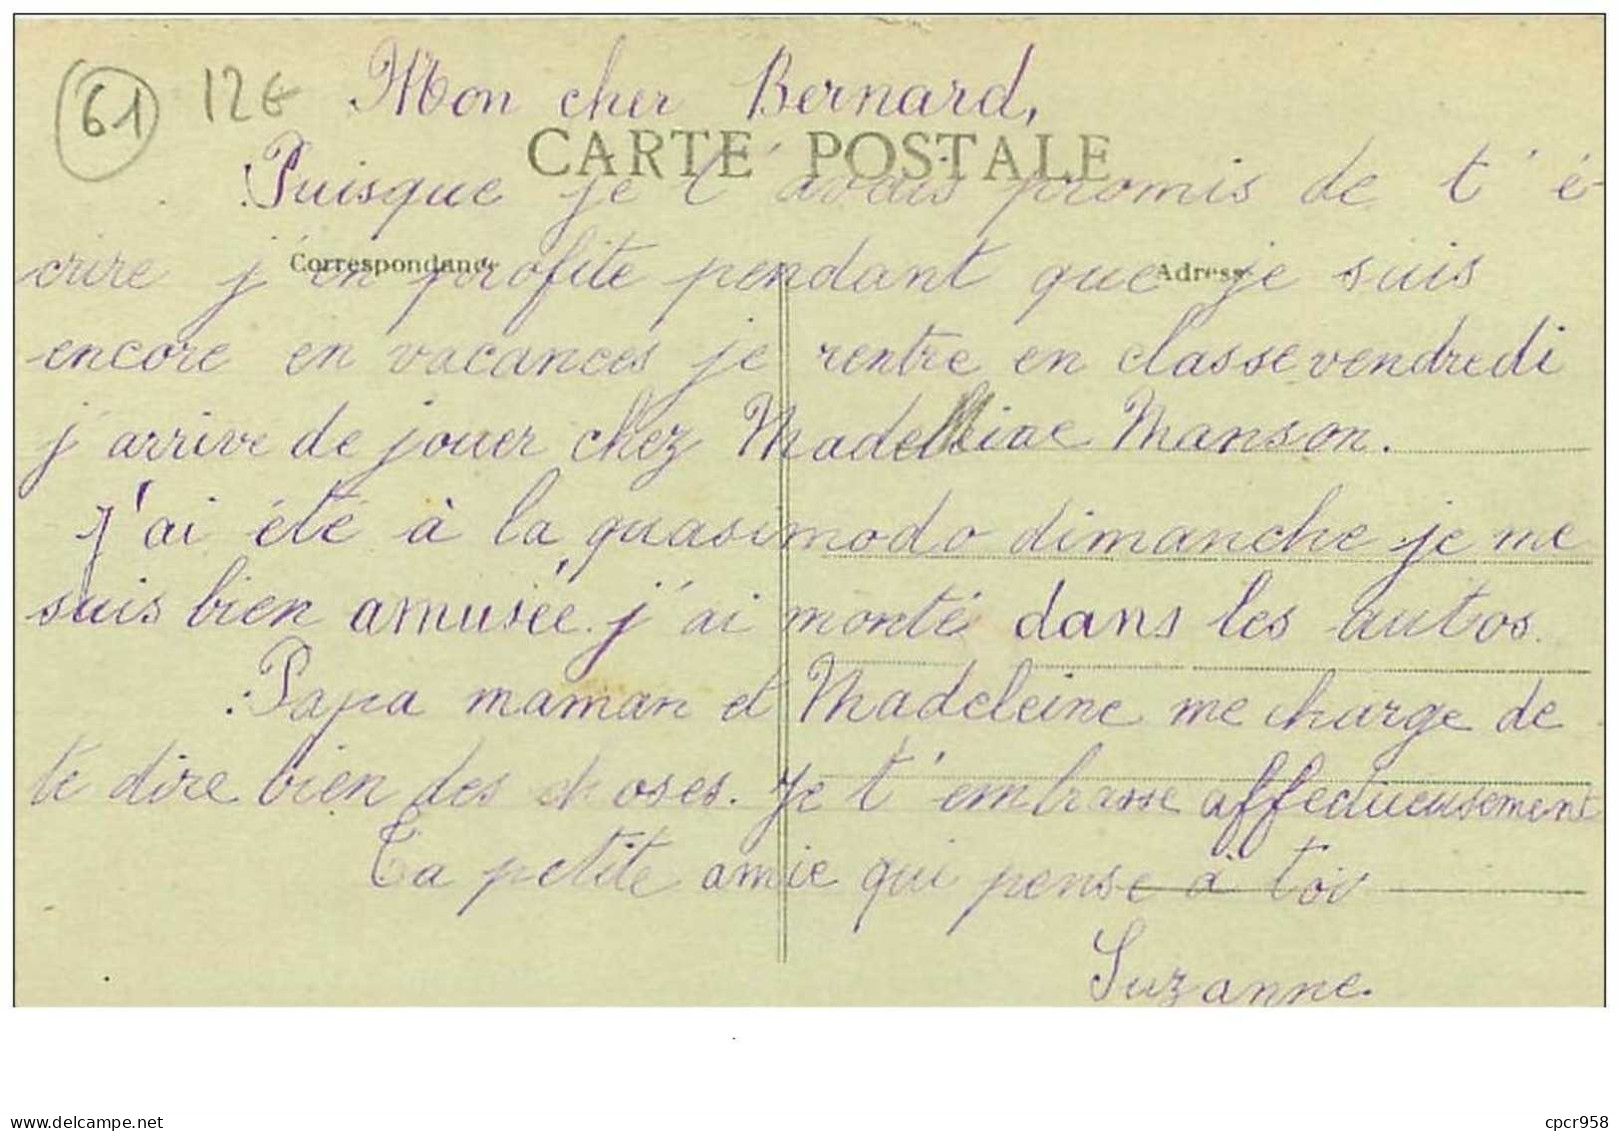 61 12€ Mon cher Bernard,
CARTE POSTALE
Puisque je t'avais promis de t'é-
Correspondance Adresse
crire j'en profite pendant que je suis
encore en vacances je rentre en classe vendredi
j'arrive de jouer chez Madeleine Manson.
j'ai été à la quasimodo dimanche je me
suis bien amusée. j'ai monté dans les autos.
Papa maman et Madeleine me charge de
te dire bien des choses. Je t'embrasse affectueusement
Ta petite amie qui pense à toi
Suzanne.
delcampe.net
cpcr958